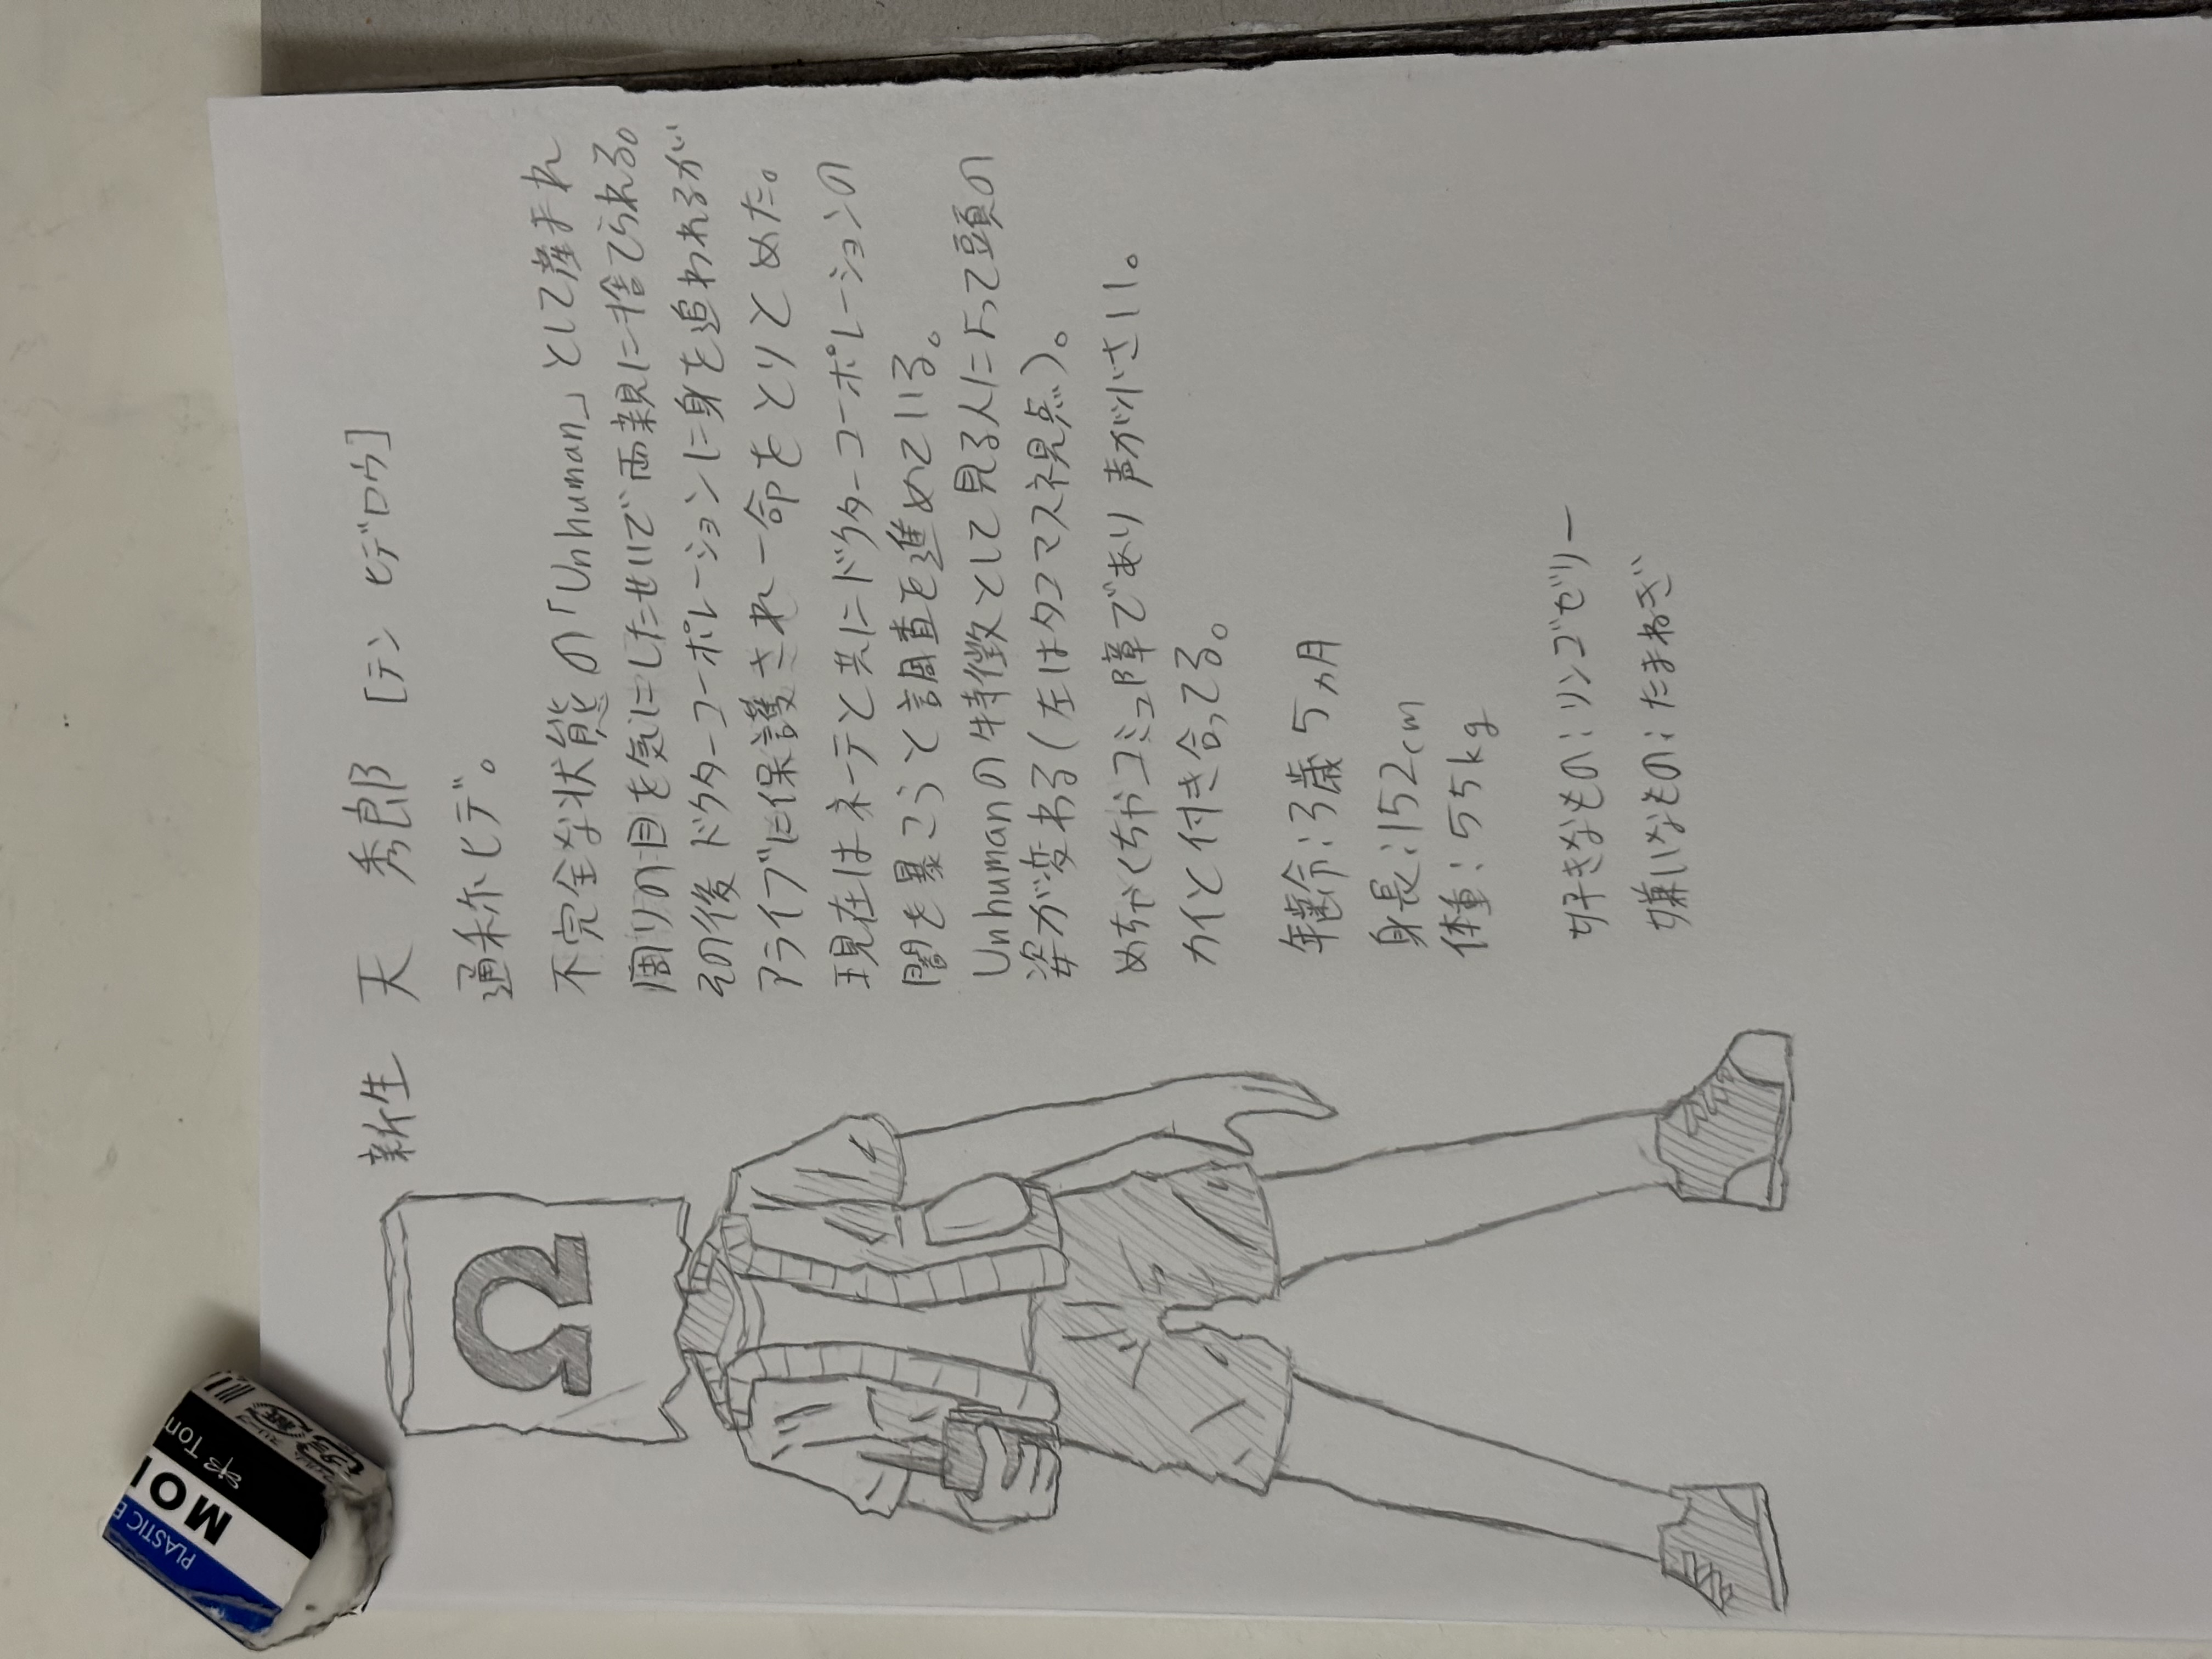 新生 天 秀郎 [テン ヒデロウ]
通称ヒデ。
不完全な状態の「Unhuman」として産まれ
周りの目を気にしたせいで両親に捨てられる。
その後ドクターコーポレーションに身を追われるが
アライブに保護され一命をとりとめた。
現在はネーテと共にドクターコーポレーションの
闇を暴こうと調査を進めている。
Unhumanの特徴として見る人によって頭の
姿が変わる(左はタコマス視点)。
めちゃくちゃコミュ障であり声が小さい。
カイと付き合ってる。
年齢:3歳5ヵ月
身長:152cm
体重:55kg
好きなもの:リンゴゼリー
嫌いなもの:たまねぎ
Ω
PLASTIC E
MO
Ton